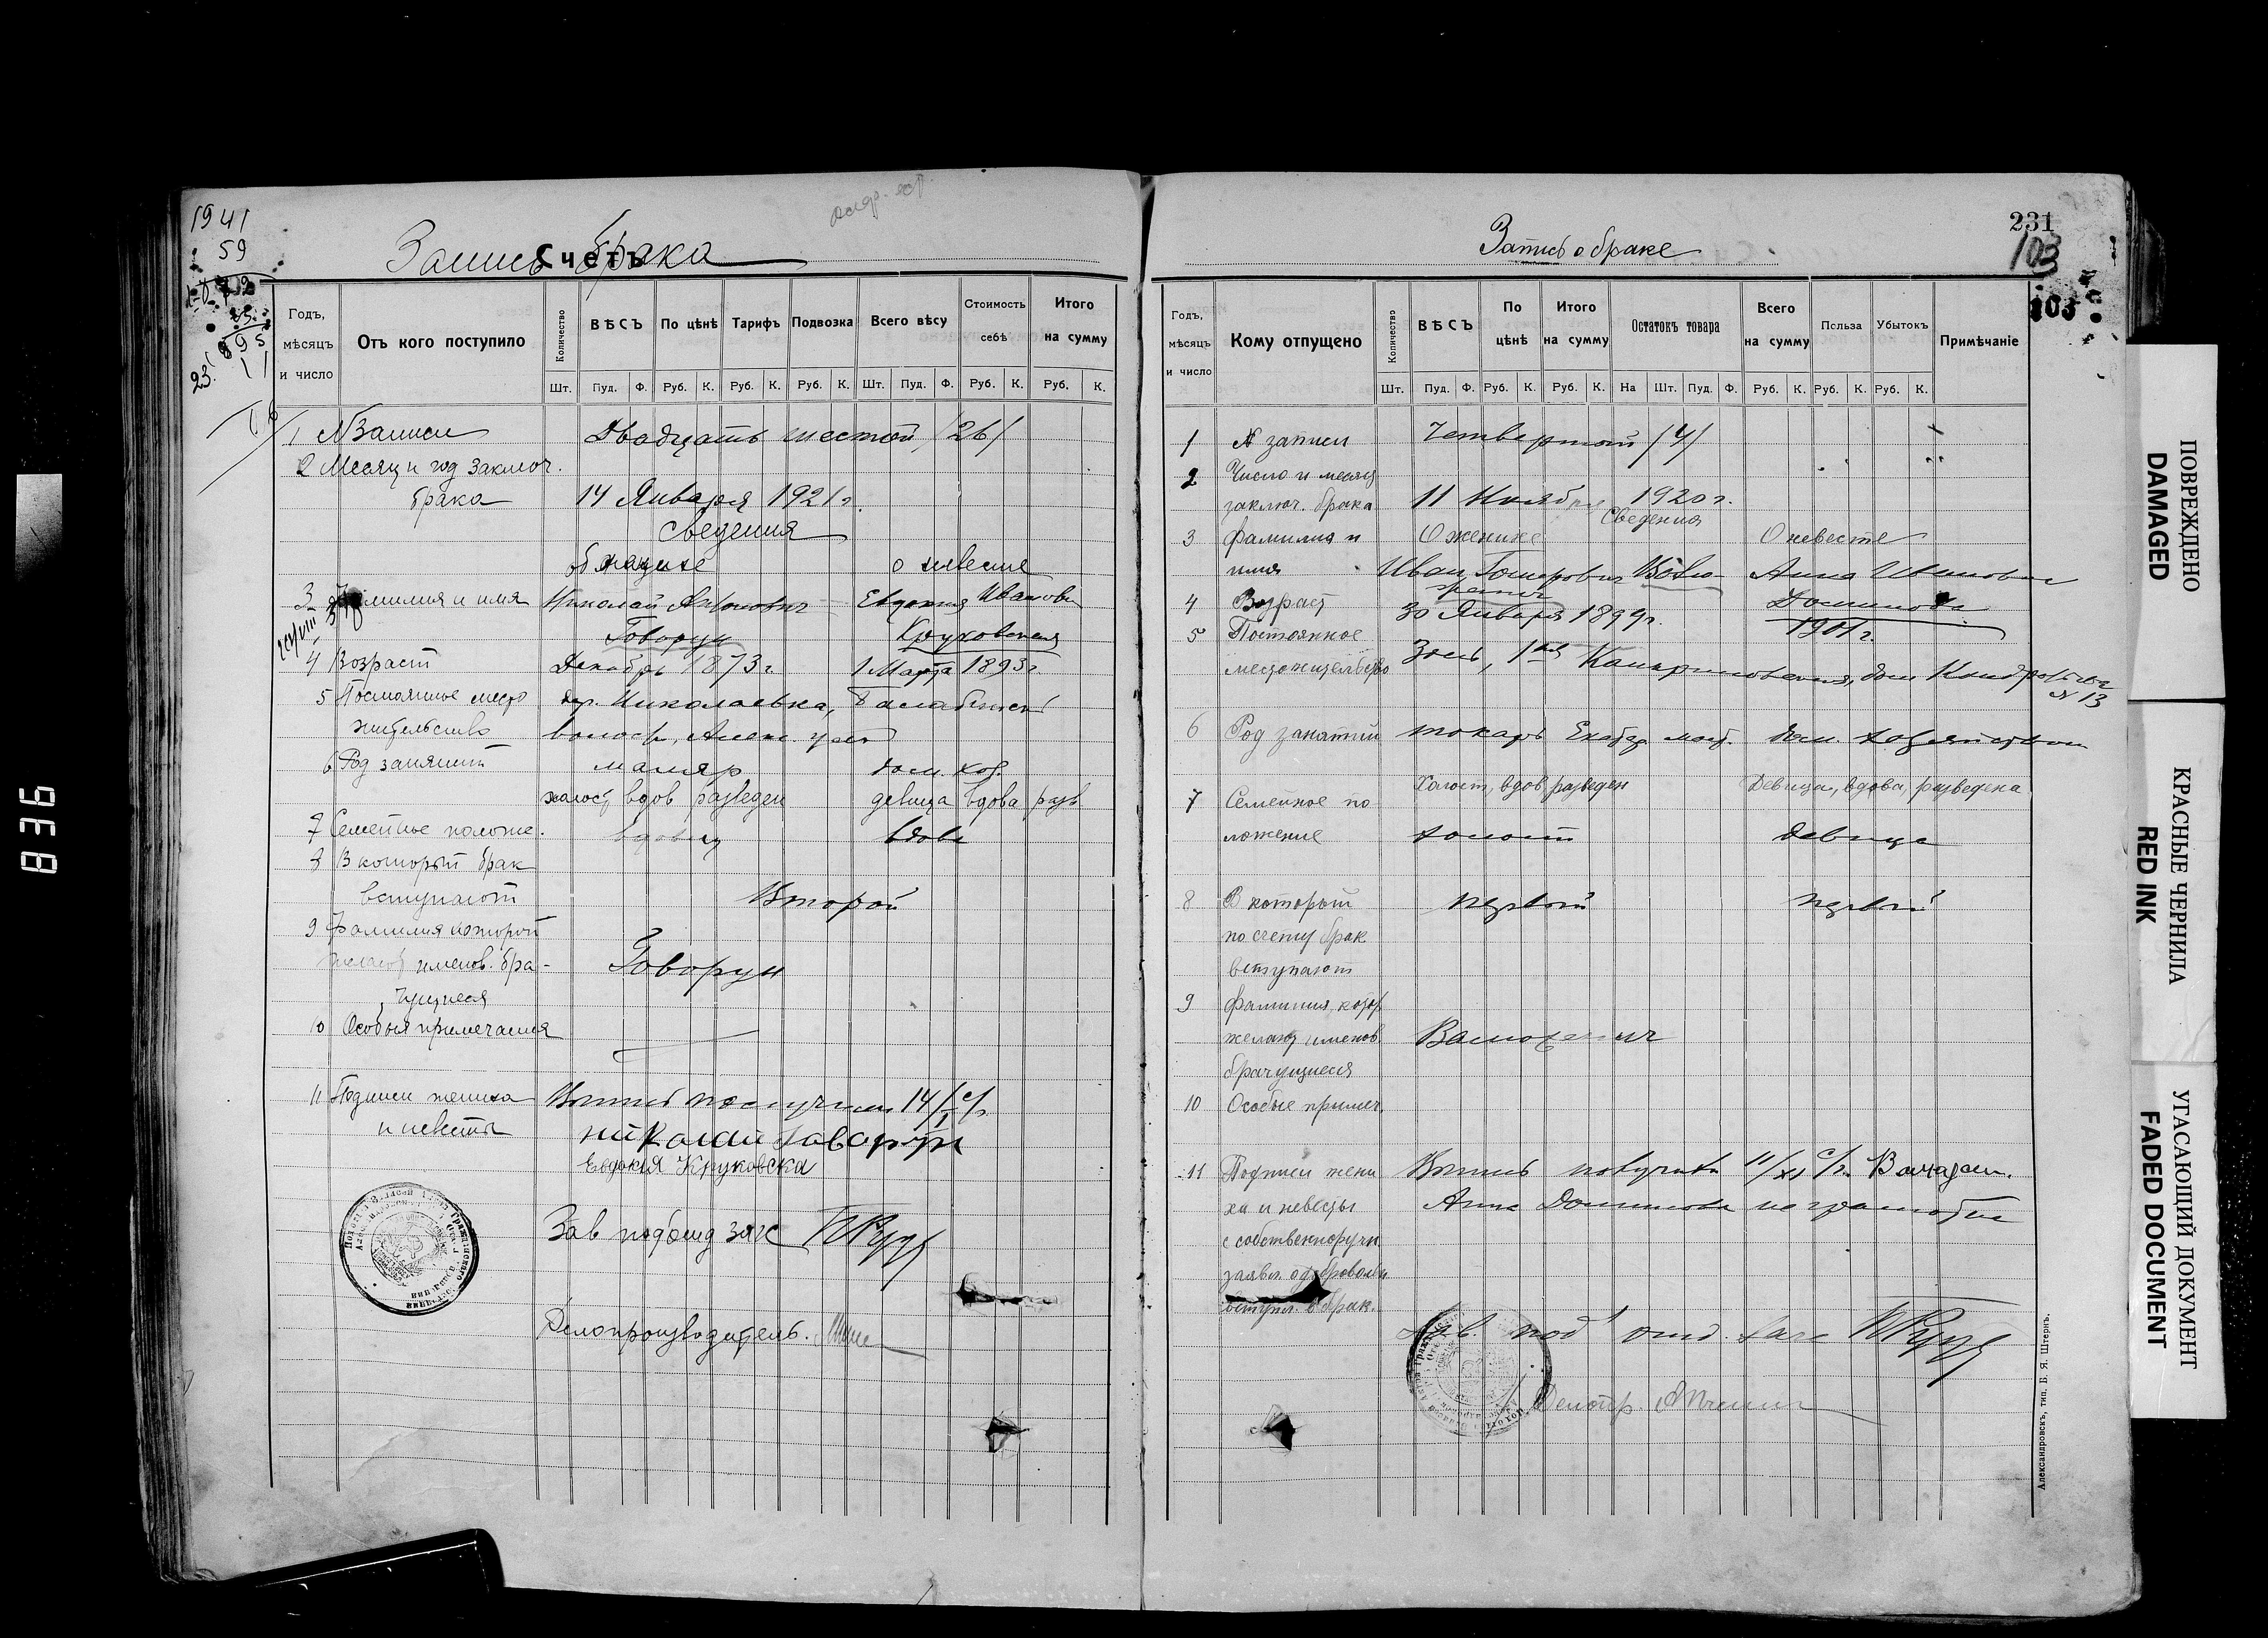 1941
59
Запись брака
Счетъ
Годъ, мѣсяцъ и число
Отъ кого поступило
Количество
ВѢСЪ
По цѣнѣ
Тарифъ
Подвозка
Всего вѣсу
Стоимость себѣ
Итого на сумму
Шт. Пуд. Ф. Руб. К. Руб. К. Руб. К. Шт. Пуд. Ф. Руб. К. Руб. К.
1 № Записи Двадцать шестой /26/
2 Месяц и год заключ.
брака 14 Января 1921 г.
Сведения
о женихе о невесте
3 Фамилия и имя Николай Антонович Евдокия Иванов
Говорун Круковская
4 Возраст Декабрь 1873 г. 1 Марта 1893 г.
5 Постоянное место дер. Николаевка, Балабинск
жительство волост, Алекс. уез
6 Род занятий маляр дом. хоз.
холост вдов разведен девица вдова разв
7 Семейное положе. вдовец вдова
8 В который брак
вступают Второй
9 Фамилия которой
желают именов. бра-
чущиеся Говорун
10 Особыя примечания
11 Подписи жениха Выпись получили 14/I с/г
и невесты Николай Говорун
Евдокия Круковска
Зав подотд загс
Делопроизводитель.
Запись о браке
231
103
103
Годъ, мѣсяцъ и число
Кому отпущено
Количество
ВѢСЪ
По цѣнѣ
Итого на сумму
Остатокъ товара
Всего на сумму
Польза
Убытокъ
Примѣчаніе
Шт. Пуд. Ф. Руб. К. Руб. К. На Шт. Пуд. Ф. Руб. К. Руб. К. Руб. К.
1 № записи Четвертый /4/
2 Число и месяц
заключ. брака 11 Ноября 1920 г.
Сведения
3 Фамилия и О женихе О невесте
имя Иван Анна Ивановна
4 Возраст 30 Января 1899 г. 1901 г.
5 Постоянное
местожительство Здесь, 1ая дом № 13
6 Род занятий токарь дом. хозяйством
Холост, вдов, разведен Девица, вдова, разведена
7 Семейное по-
ложение холост девица
8 В который первый первый
по счету брак
вступают
9 Фамилия, котор.
желают именов.
брачущиеся
10 Особые примеч.
11 Подписи жени Выпись получила 11/XI с/г.
ха и невесты Анна неграмотна
с собственноручн.
заявл. о добровольн.
вступл. в брак.
Зав. под отд. загс
Делопр.
Александровскъ, тип. Б. Я. Штернъ.
ПОВРЕЖДЕНО
DAMAGED
КРАСНЫЕ ЧЕРНИЛА
RED INK
УГАСАЮЩИЙ ДОКУМЕНТ
FADED DOCUMENT
836